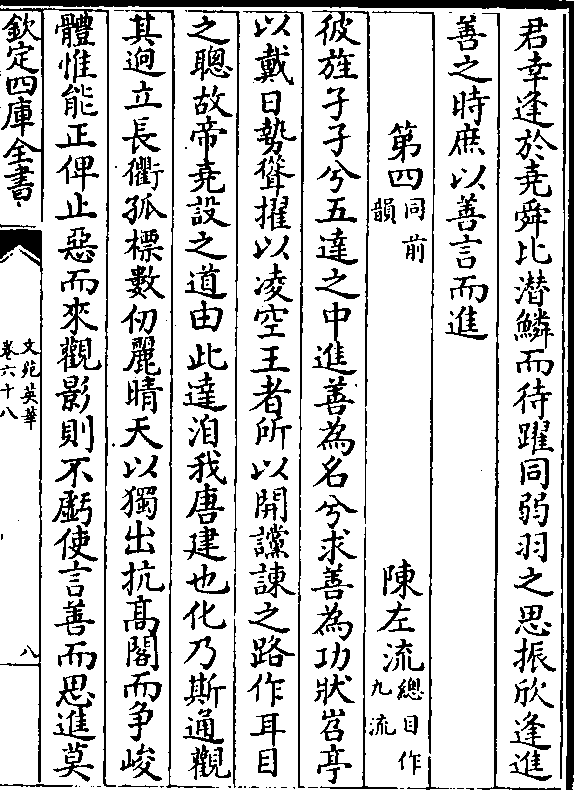 君幸逢於堯舜比潛鱗而待躍同弱羽之思振欣逢進
善之時庶以善言而進
第四同前韻 陳左流總目作九流
彼旌孑孑兮五達之中進善為名兮求善為功狀岧亭
以戴日勢聳擢以凌空王者所以開讜諫之路作耳目
之聰故帝堯設之道由此達洎我唐建也化乃斯通觀
其逈立長衢孤標數仞麗晴天以獨出抗高閣而争峻
體惟能正俾止惡而來觀影則不虧使言善而思進莫
欽定四庫全書
文苑英華
卷六十八
八